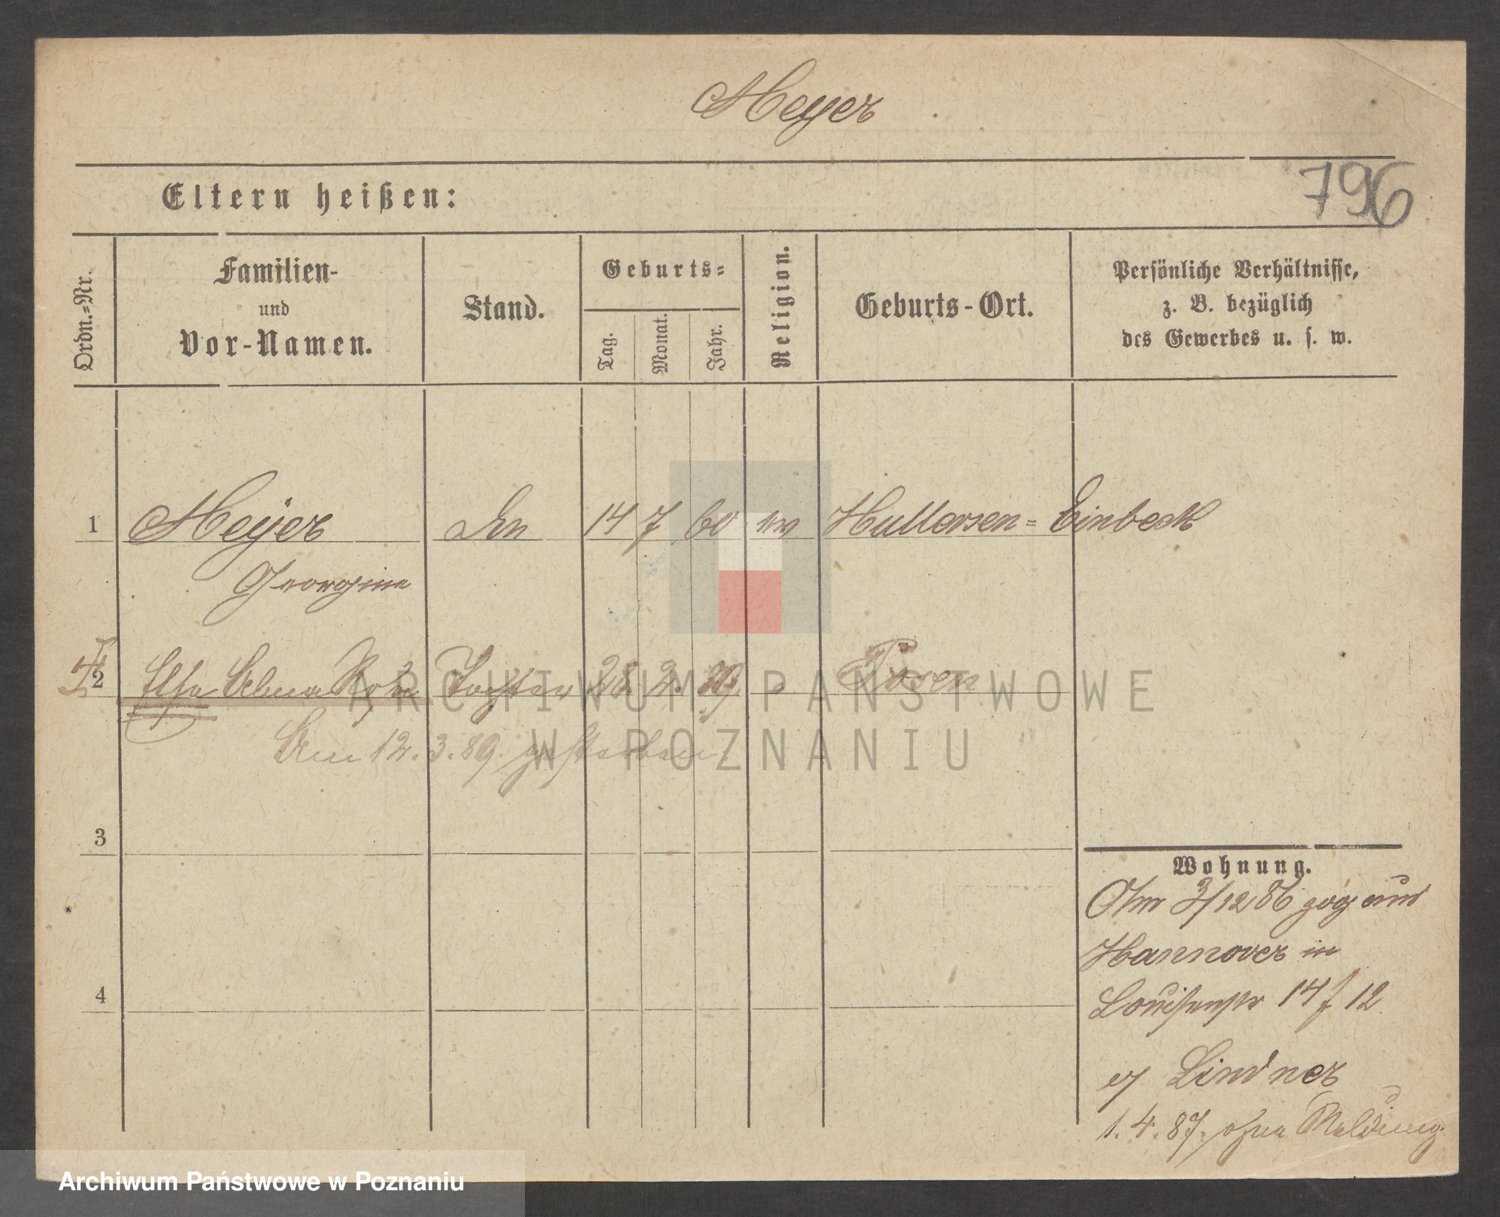 Meyer
796
Eltern heißen:
Ordn.-Nr.
Familien-
und
Vor-Namen.
Stand.
Geburts-
Tag.
Monat.
Jahr.
Religion.
Geburts-Ort.
Persönliche Verhältnisse,
z. B. bezüglich
des Gewerbes u. s. w.
1 Meyer 14 7 60 ev Hullersen - Einbeck
Georgine
2 Else Tochter 28. 2. 89 Posen
Am 12. 3. 89. gestorben
3
4
Wohnung.
3/12 86 zog aus
Hannover in
Louisenstr 14 f 12
Lindner
1. 4. 87. ohne Meldung
ARCHIWUM PAŃSTWOWE
W POZNANIU
Archiwum Państwowe w Poznaniu